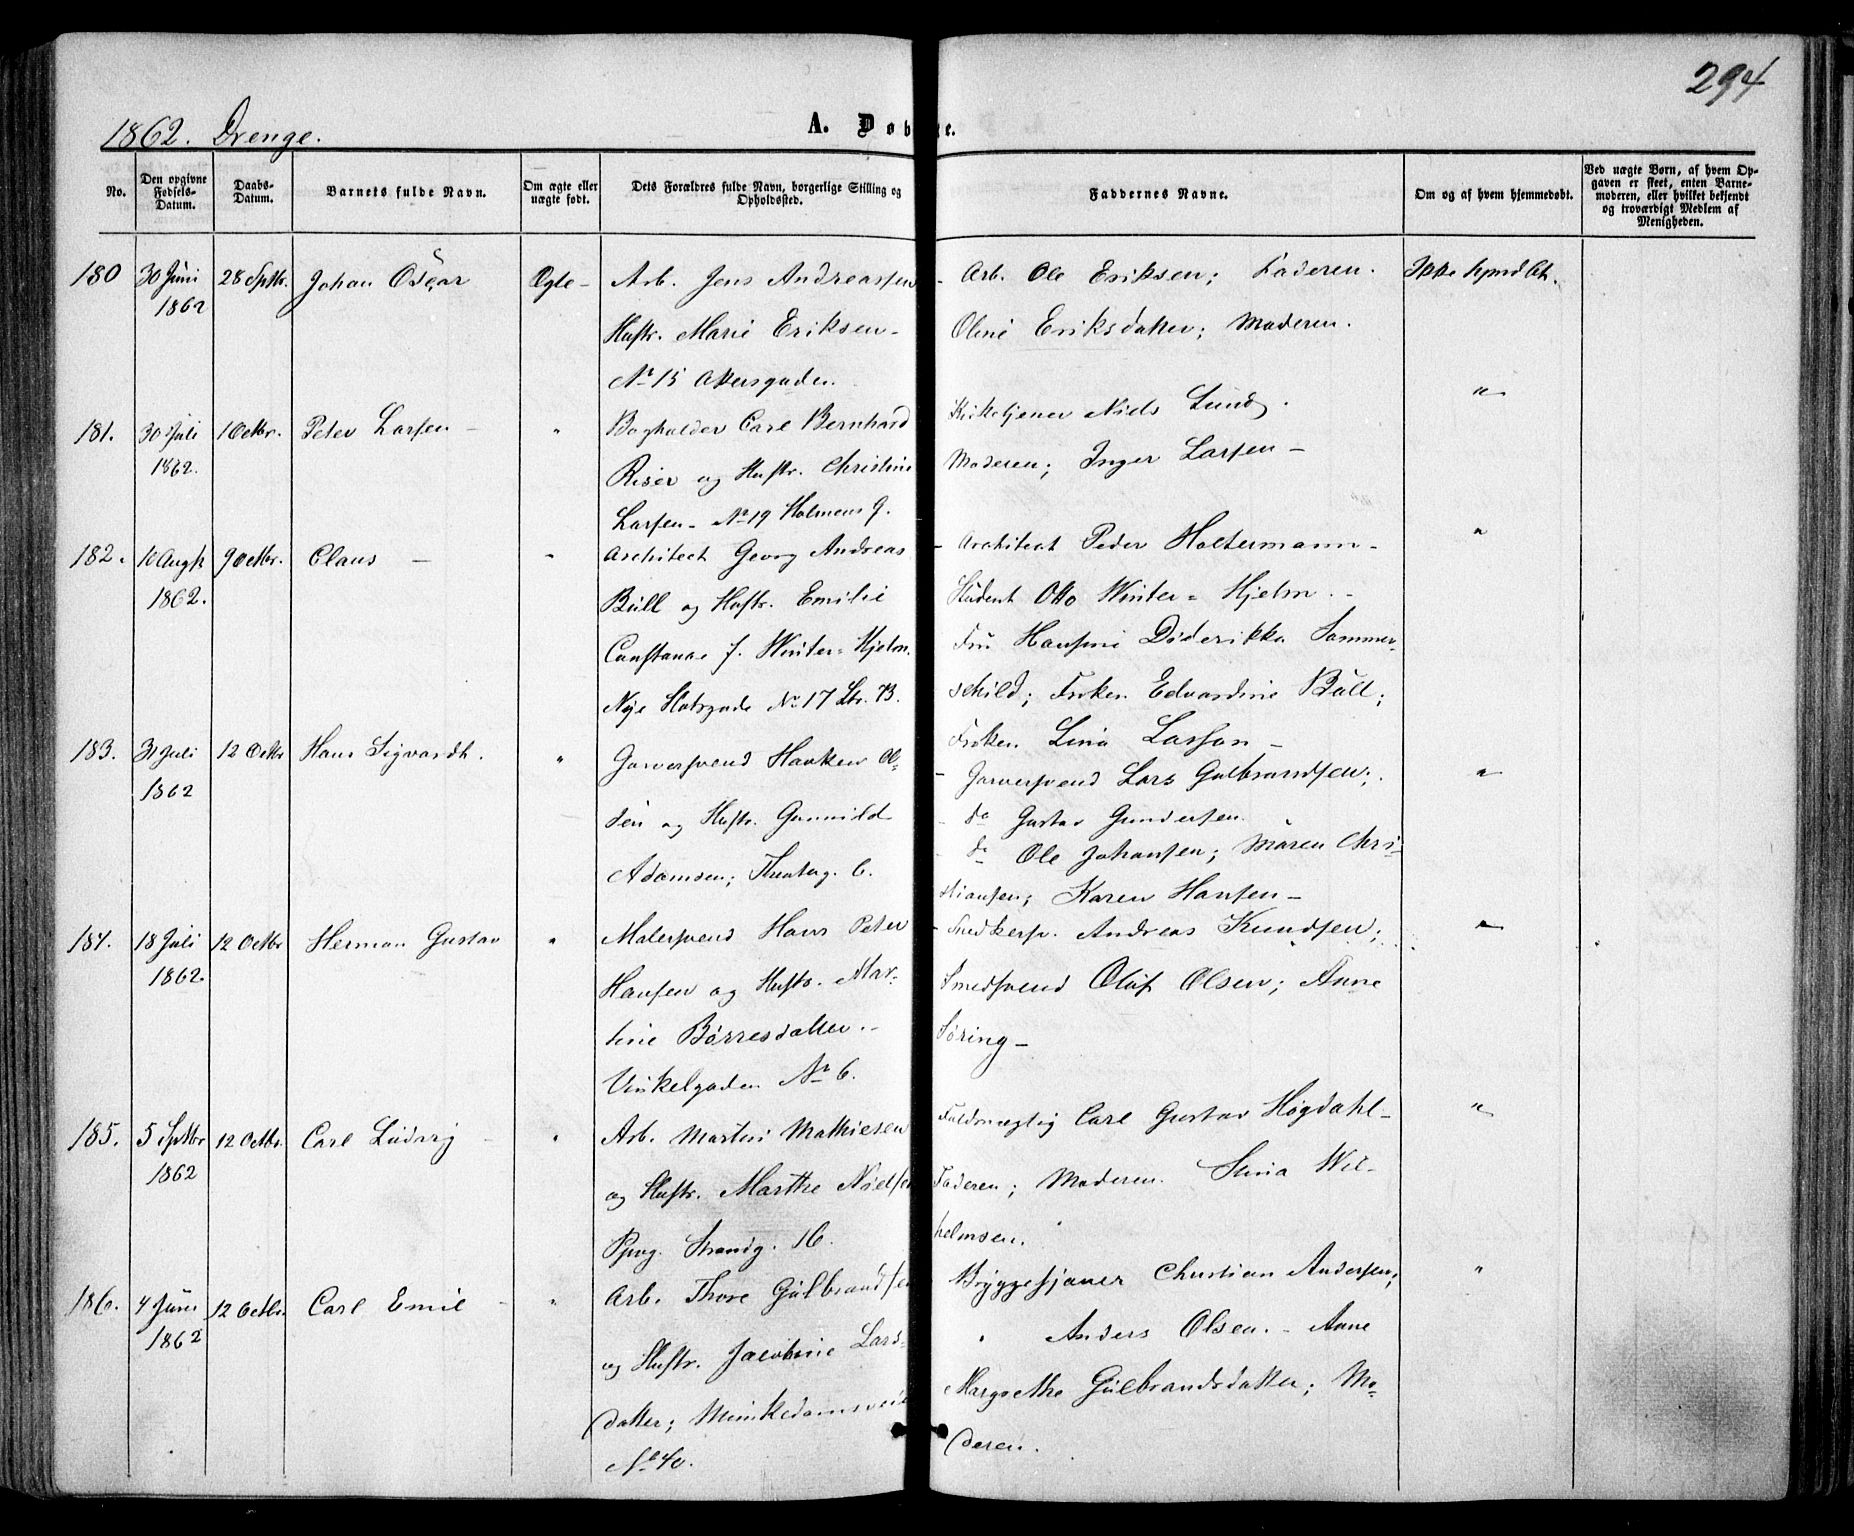 294
1862. Drenge.
A. Døbte.
No.
Den opgivne Fødsels-Datum.
Daabs-Datum.
Barnets fulde Navn.
Om ægte eller uægte født.
Dets Forældres fulde Navn, borgerlige Stilling og Opholdssted.
Faddernes Navne.
Om og af hvem hjemmedøbt.
Ved uægte Børn, af hvem Op-
gaven er skeet, enten Barne-
moderen, eller hvilket bekjendt
og troværdigt Medlem af
Menigheden.
180 30 Juni 28 Sptbr. Johan Oscar Ægte - Arb. Jens Andreassen - Arb. Ole Eriksen; Faderen. Ikke hjmdbt.
1862 Hustr. Marie Eriksen - Oline Eriksdatter; Moderen.
No 15 Akersgaden.
181. 30 Juli 1 Octbr. Peter Larsen - " Bogholder Carl Bernhard Kirketjener Niels Lund. "
1862. Riser og Hustr. Christine Moderen; Inger Larsen -
Larsen - No 19 Holmens g.
182. 10 Augst 9 Octbr. Claus - " Architect Georg Andreas - Architect Peder Holtermann - "
1862. Büll og Hustr. Emilie Student Otto Winter=Hjelm. -
Constance f. Winter=Hjelm. Fru Hansine Diderikke Sommer-
Nye Slotsgade No 17 Ltr. B. schild; Frøken Edvardine Büll;
Frøken Lina Larson -
183. 31 Juli 12 Octbr Hans Sigvardt. " Garversvend Haaken Ol- - Garversvend Lars Gulbrandsen; "
1862 sen og Hustr. Gunnild - do Gustav Gundersen.
Adamsen; Theaterg. 6. - do Ole Johansen; Maren Chri-
stiansen; Karen Hansen -
184. 18 Juli 12 Octbr Herman Gustav " Malersvend Hans Peter - Snedkersv. Andreas Knudsen; "
1862. Hansen og Hustr. Mar- Smedsvend Oluf Olsen; Anne
tine Børresdatter. - Søring -
Vinkelgaden No 6.
185. 5 Sptbr 12 Octbr. Carl Ludvig - " Arb. Martin Mathiesen Fuldmægtig Carl Gustav Høgdahl - "
1862 og Hustr. Marthe Nielsen Faderen; Moderen. Stina Wil-
Ppvg. Strandg. 16. helmsen.
186. 4 Juni 12 Octbr. Carl Emil - " Arb. Thore Gulbrandsen - Bryggesjauer Christian Andersen; "
1862 og Hustr. Jacobine Lars- " Anders Olsen. - Anne
datter; Munkedamsveien Margrethe Gulbrandsdatter; Mo-
No 40. deren.